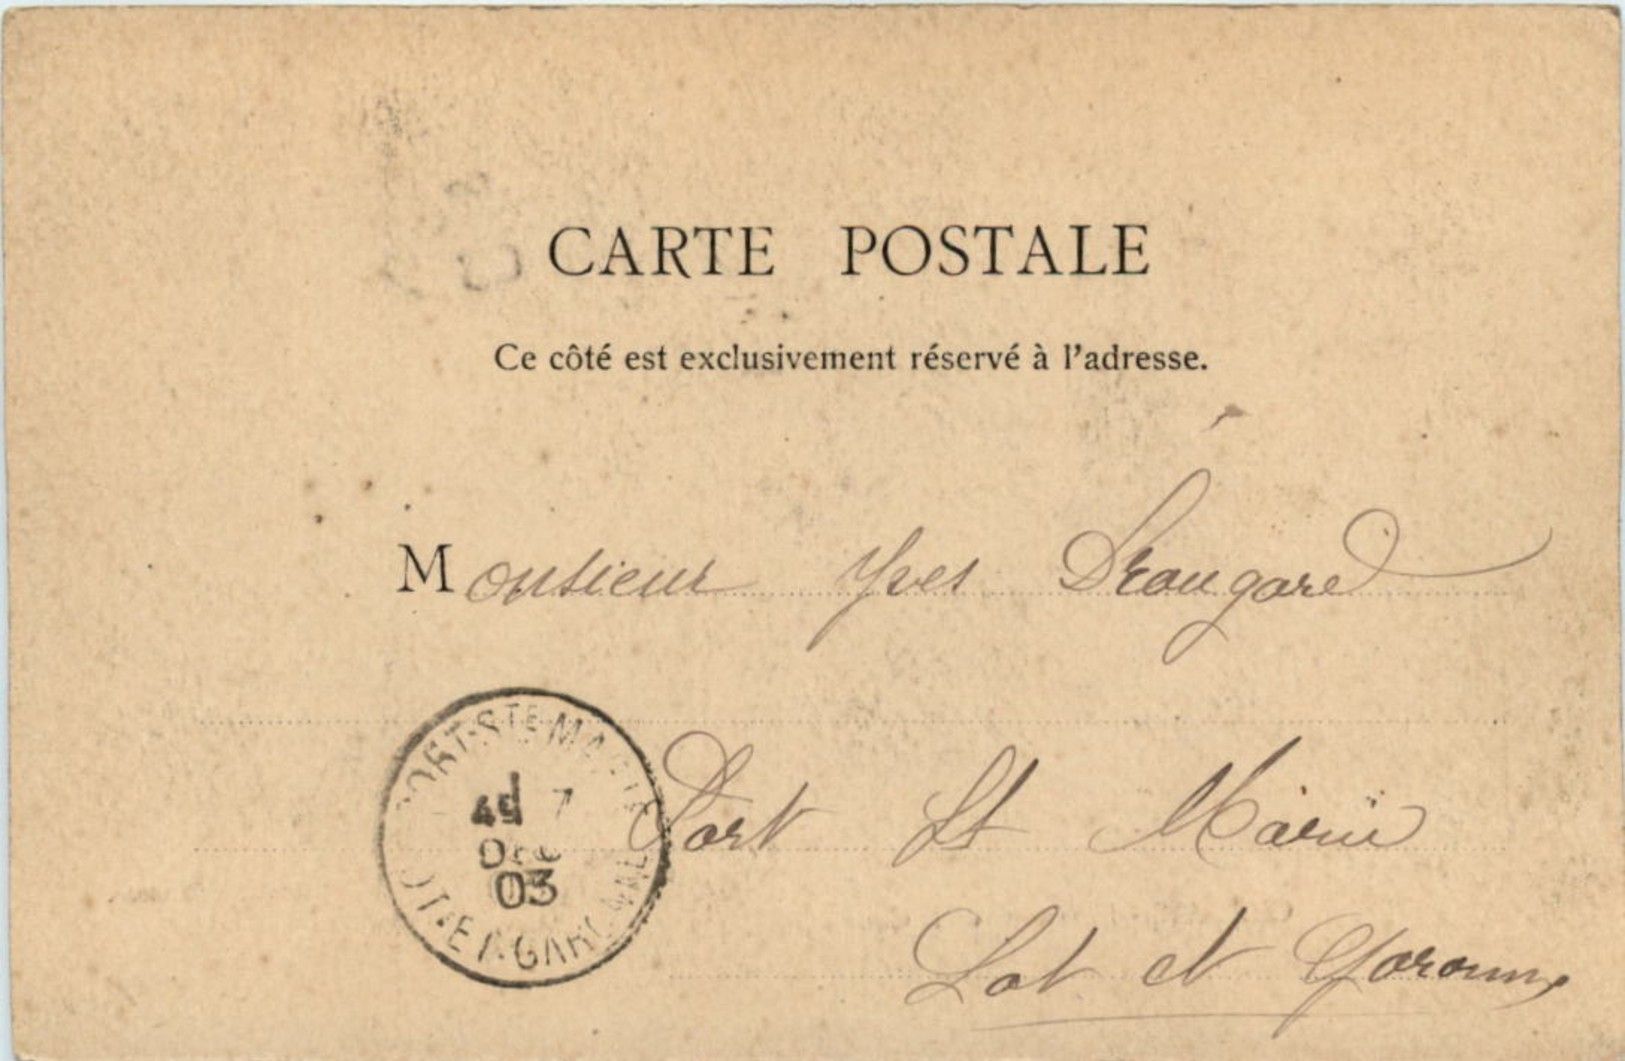 CARTE POSTALE
Ce côté est exclusivement réservé à l'adresse.
Monsieur Yves
PORT-STE-MARIE
7
DEC
03
LOT-ET-GARONNE
Port St Marie
Lot et Garonne